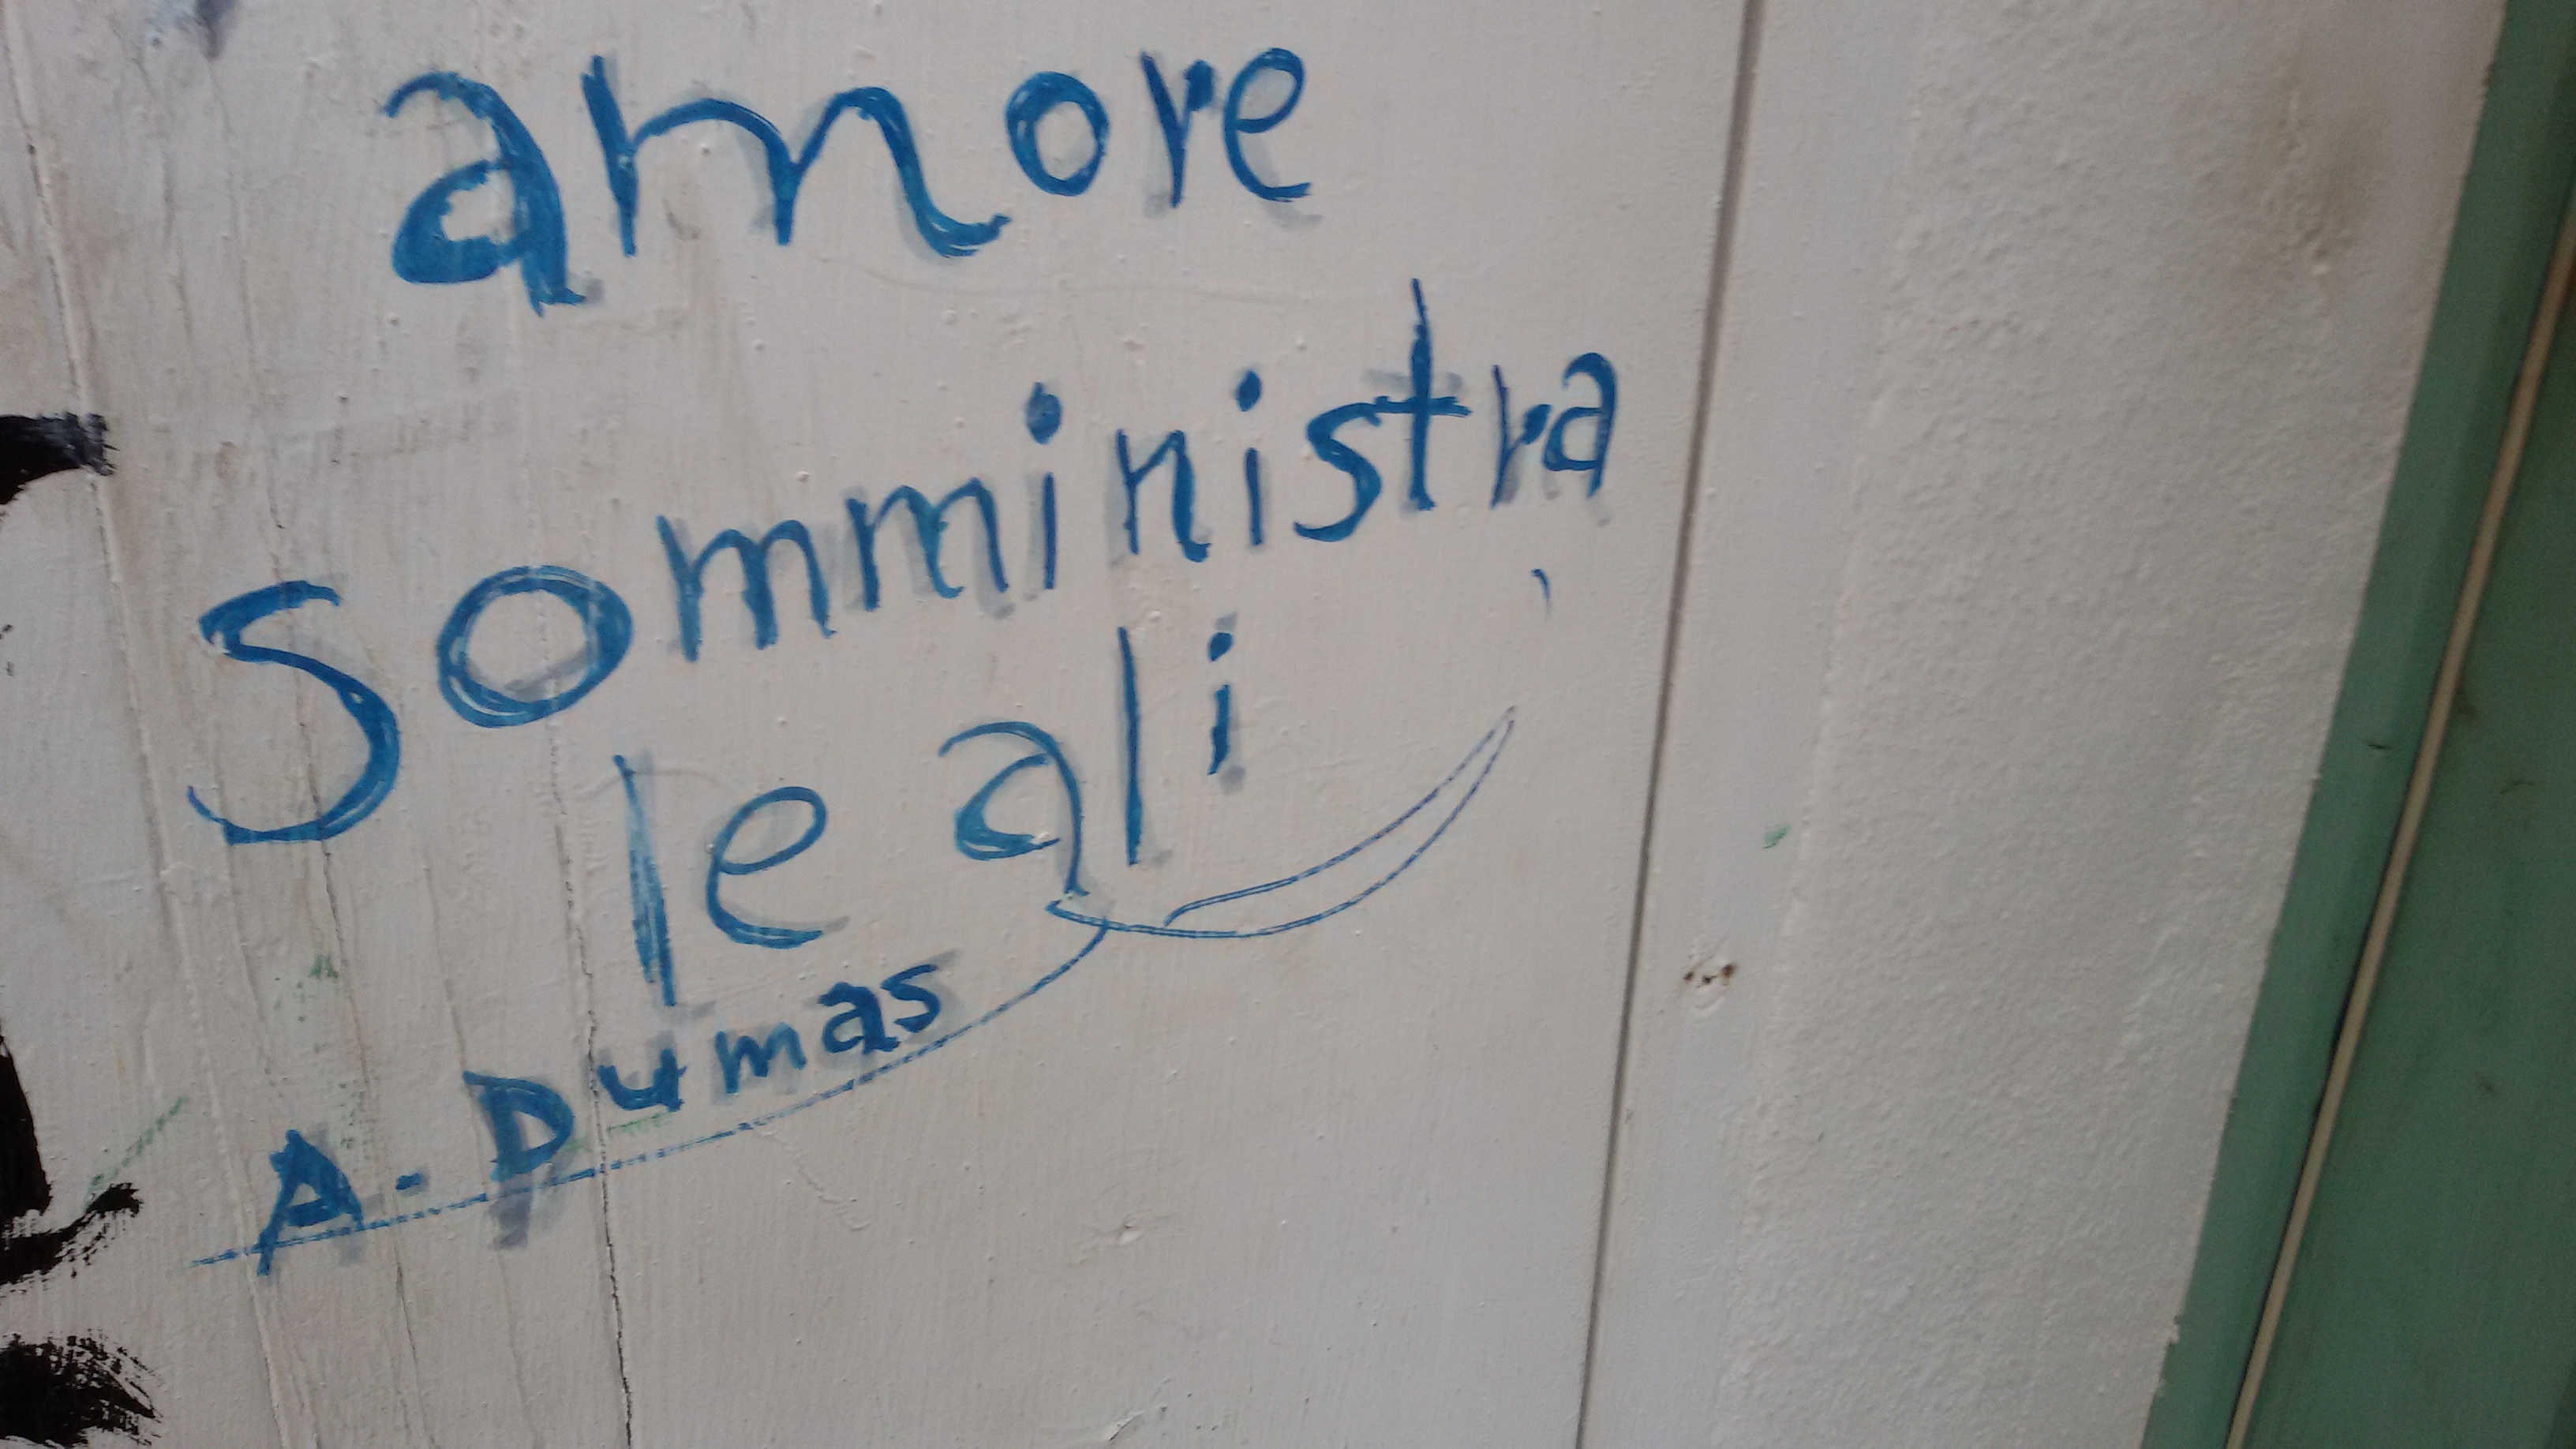 amore
somministra
le ali
A. Dumas